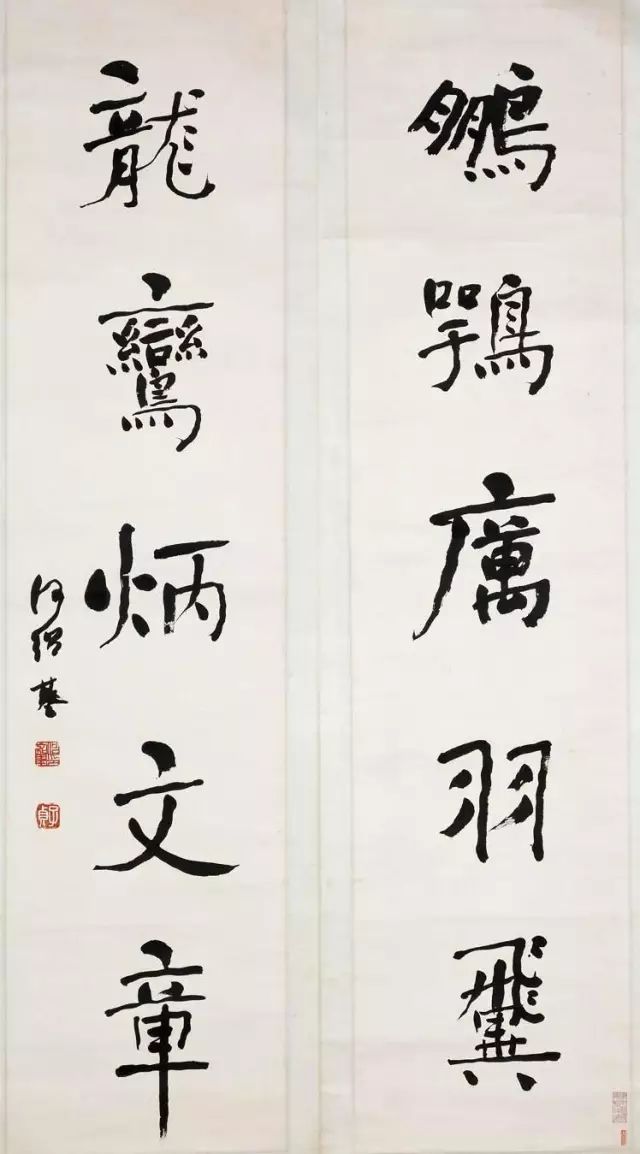 鵬鶚厲羽䨽
龍鸞炳文章
何紹基
子貞